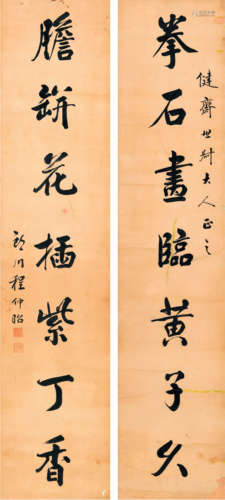 健齋世尉大人正之
拳石畫臨黃子久
膽缾花插紫丁香
穎川程仲昭